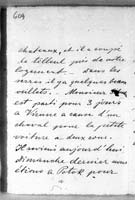 604
chateaux, et il a coupé
le tilleul près de notre
logement. dans les
serres il y a quelques beaux
œillets. Monsieur
est parti pour 3 jours
à Vienne a cause d'un
cheval pour la petite
voiture a deux roues.
Il revient aujourd'hui
dimanche dernier nous
étions a Potok pour